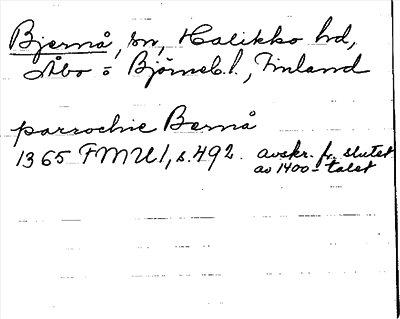 Bjernå, sn, Halikko hd,
Åbo o Björneb. l., Finland
parrochie Bernå
1365 FMU 1, s. 492. avskr. fr. slutet
av 1400-talet